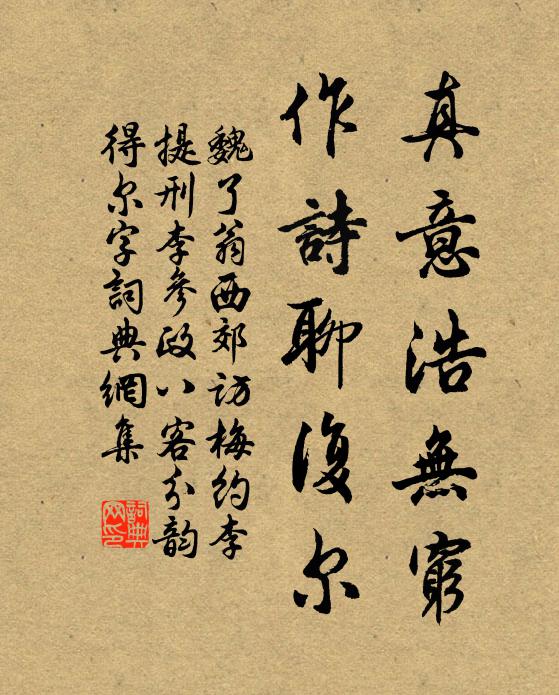 真意浩無窮
作詩聊復尔
魏了翁西郊訪梅約李
提刑李參政八客分韵
得尔字詞典網集
詞典网印